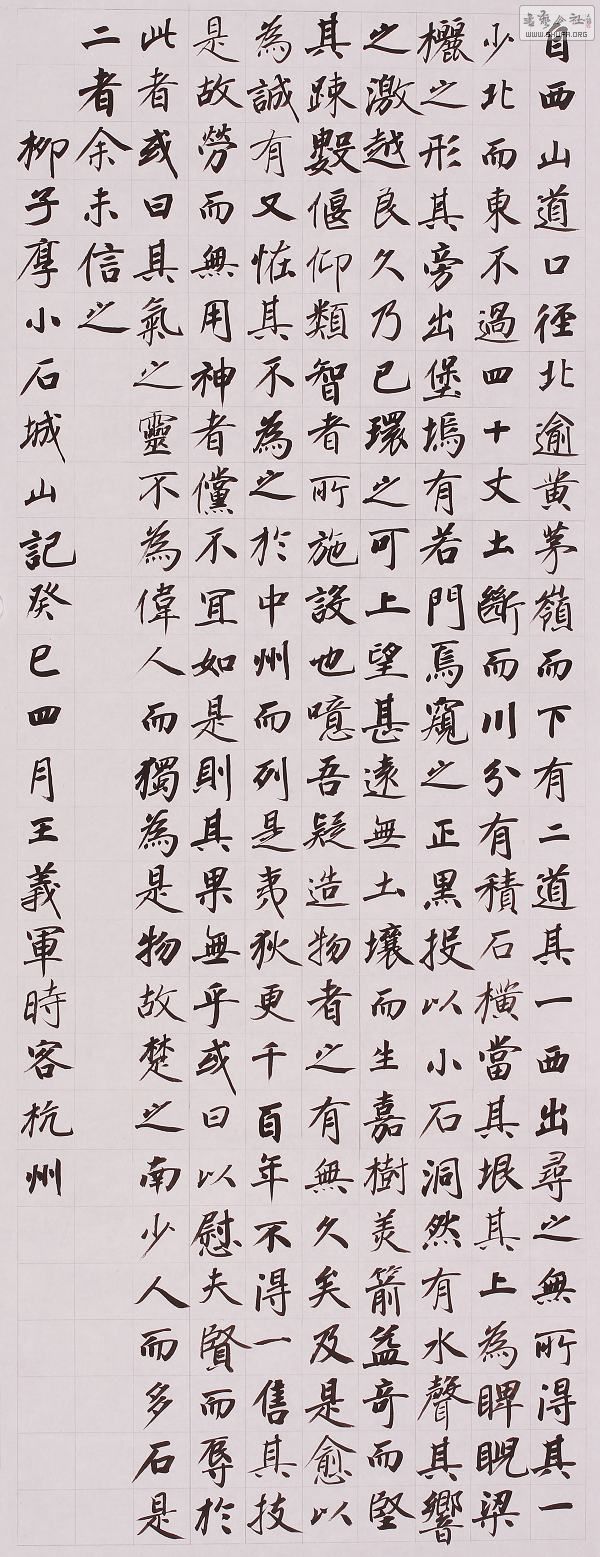 自西山道口徑北逾黄茅嶺而下有二道其一西出尋之無所得其一
少北而東不過四十丈土斷而川分有積石橫當其垠其上為睥睨梁
欐之形其旁出堡塢有若門焉窺之正黑投以小石洞然有水聲其響
之激越良久乃已環之可上望甚遠無土壤而生嘉樹美箭益奇而堅
其踈數偃仰類智者所施設也噫吾疑造物者之有無久矣及是愈以
為誠有又恠其不為之於中州而列是夷狄更千百年不得一售其技
是故勞而無用神者儻不宜如是則其果無乎或曰以慰夫賢而辱於
此者或曰其氣之靈不為偉人而獨為是物故楚之南少人而多石是
二者余未信之
柳子厚小石城山記癸巳四月王義軍時客杭州
WWW.SHUFA.ORG